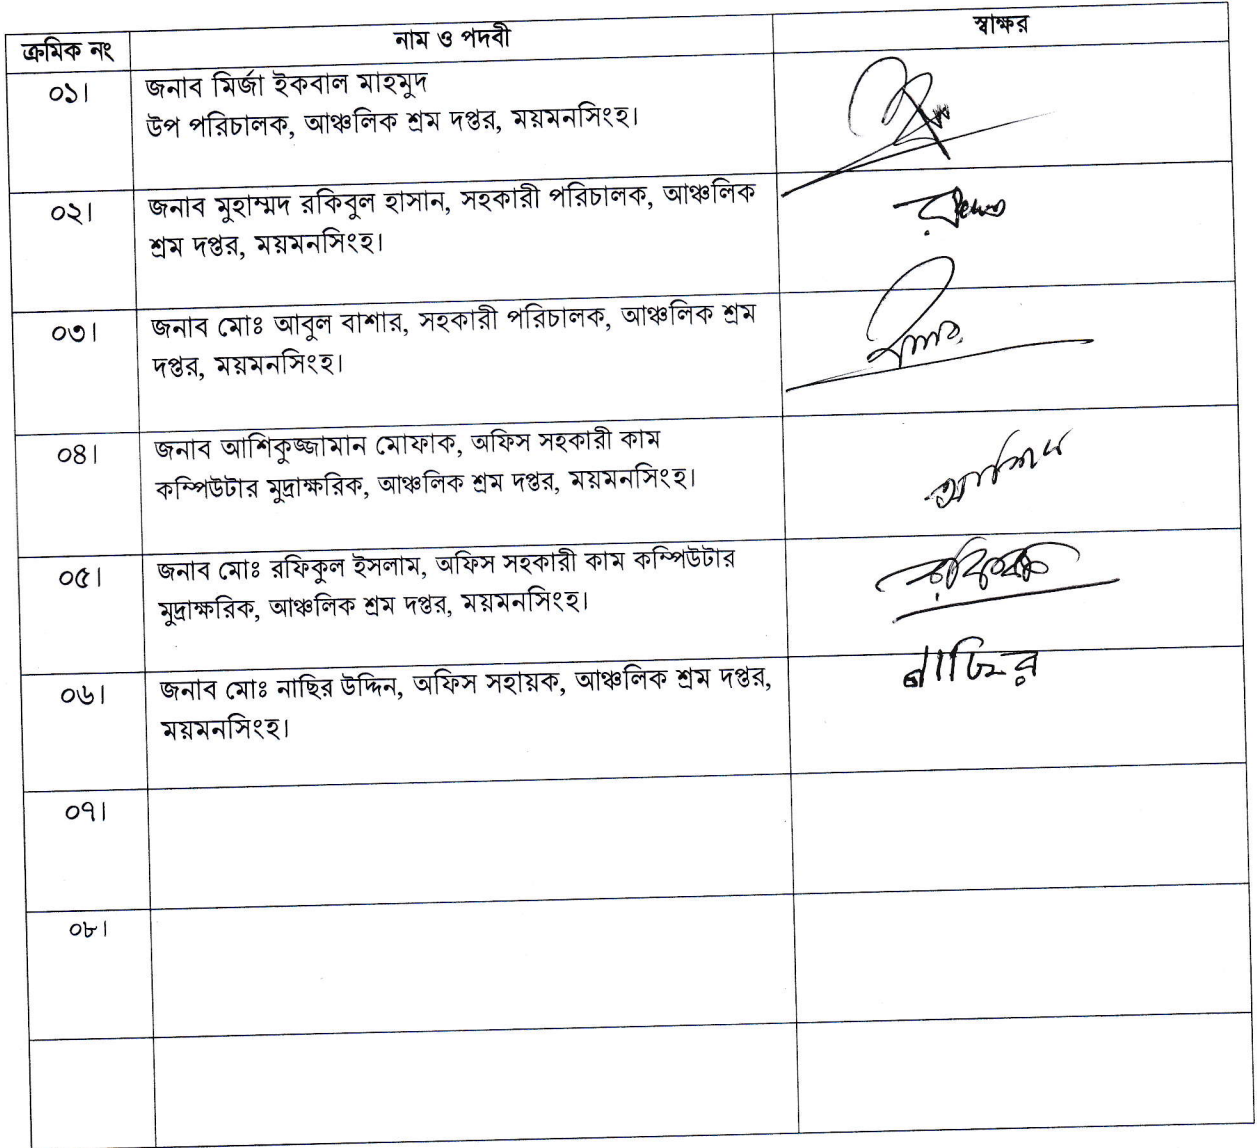 ক্রমিক নং নাম ও পদবী স্বাক্ষর
০১। জনাব মির্জা ইকবাল মাহমুদ
উপ পরিচালক, আঞ্চলিক শ্রম দপ্তর, ময়মনসিংহ।
০২। জনাব মুহাম্মদ রকিবুল হাসান, সহকারী পরিচালক, আঞ্চলিক
শ্রম দপ্তর, ময়মনসিংহ।
০৩। জনাব মোঃ আবুল বাশার, সহকারী পরিচালক, আঞ্চলিক শ্রম
দপ্তর, ময়মনসিংহ।
০৪। জনাব আশিকুজ্জামান মোফাক, অফিস সহকারী কাম
কম্পিউটার মুদ্রাক্ষরিক, আঞ্চলিক শ্রম দপ্তর, ময়মনসিংহ।
০৫। জনাব মোঃ রফিকুল ইসলাম, অফিস সহকারী কাম কম্পিউটার
মুদ্রাক্ষরিক, আঞ্চলিক শ্রম দপ্তর, ময়মনসিংহ।
০৬। জনাব মোঃ নাছির উদ্দিন, অফিস সহায়ক, আঞ্চলিক শ্রম দপ্তর,
ময়মনসিংহ।
০৭।
০৮।